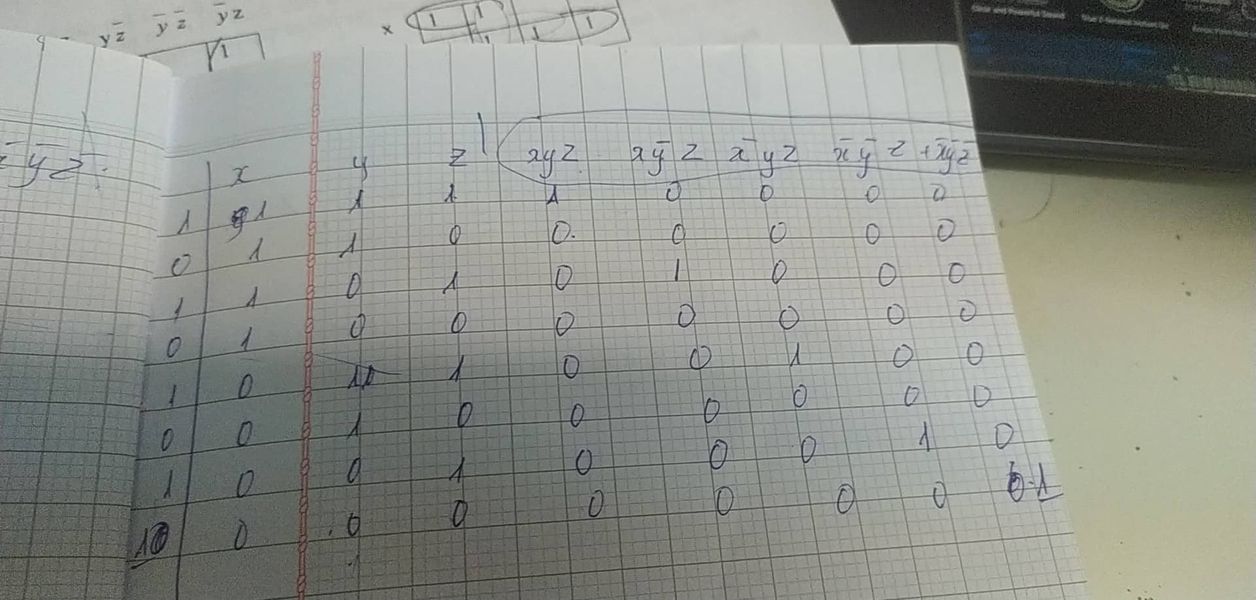 yz̅ y̅ z̅ y̅z
1
x 1 1 1
y̅ z̅
x y z xyz xy̅z x̅yz x̅y̅z +x̅y̅z̅
1 1 1 1 1 0 0 0 0
0 1 1 0 0. 0 0 0 0
1 1 0 1 0 1 0 0 0
0 1 0 0 0 0 0 0 0
1 0 1 1 0 0 1 0 0
0 0 1 0 0 0 0 0 0
1 0 0 1 0 0 0 1 0
1 0 0 0 0 0 0 0 1